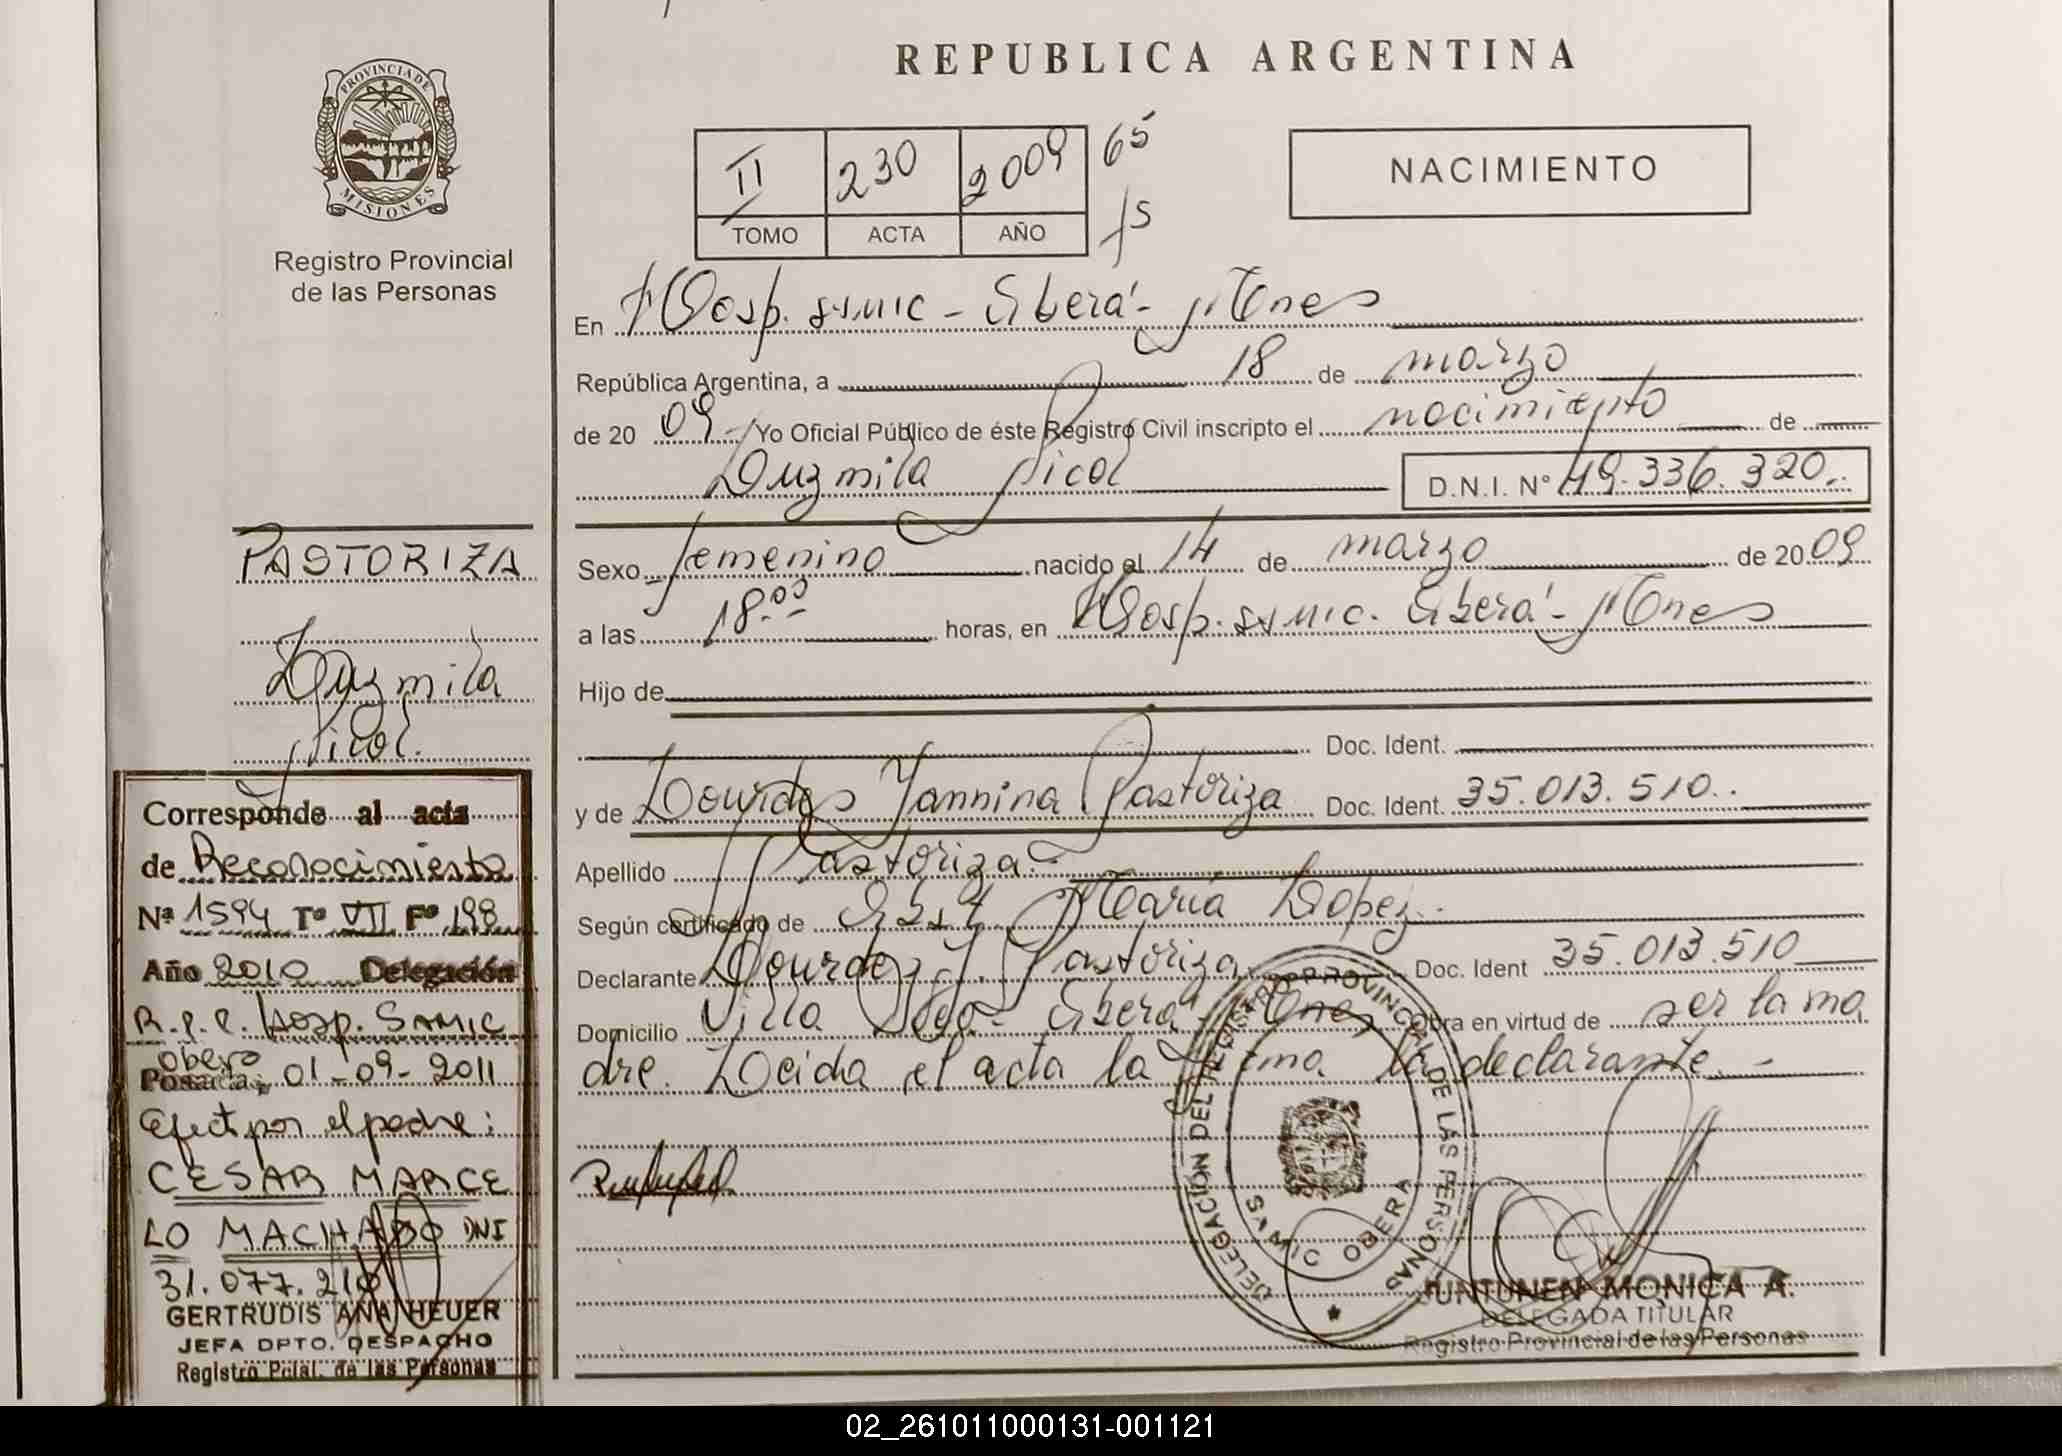 REPUBLICA ARGENTINA
PROVINCIA DE
MISIONES
Registro Provincial
de las Personas
II 230 2009 65
TOMO ACTA AÑO
NACIMIENTO
En Hosp. SAMIC - Oberá - Mnes
República Argentina, a 18 de marzo
de 20 09 Yo Oficial Público de éste Registro Civil inscripto el nacimiento de
Luzmila Nicol D.N.I. N° 49.336.320..
Sexo femenino nacido el 14 de marzo de 20 09
a las 18.00 horas, en Hosp. SAMIC. Oberá - Mnes
Hijo de
Doc. Ident.
y de Lourdes Yannina Pastoriza Doc. Ident. 35.013.510..
Apellido Pastoriza.-
Según certificado de Obst. María Lopez.
Declarante Lourdes Y. Pastoriza Doc. Ident 35.013.510
Domicilio Villa Oberá Mnes Obra en virtud de ser la ma
dre. Leida el acta la firma la declarante.-
PASTORIZA
Luzmila
Nicol.
Corresponde al acta
de Reconocimiento
Nº 1594 Tº VII Fº 198
Año 2010 Delegación
R.P.P. Hosp. SAMIC
Obera
Posadas, 01-09-2011
Efect por el padre:
CESAR MARCE
LO MACHADO DNI
31.077.210
GERTRUDIS ANA HEUER
JEFA DPTO. DESPACHO
Registro Pcial. de las Personas
DELEGACIÓN DEL REGISTRO PROVINCIAL DE LAS PERSONAS
SAMIC OBERA
JUNTUNEN MONICA A.
DELEGADA TITULAR
Registro Provincial de las Personas
02_261011000131-001121